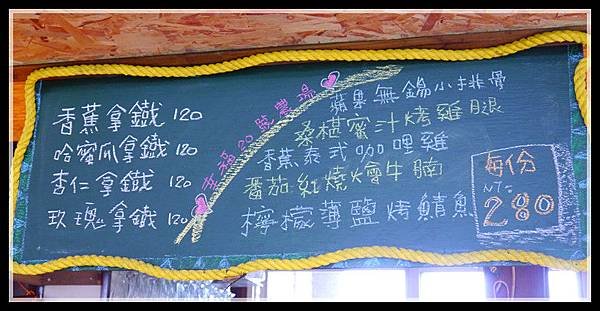 香蕉拿鐵 120
哈蜜瓜拿鐵 120
杏仁拿鐵 120
玫瑰拿鐵 120
幸福20號農場
蘋果無錫小排骨
桑椹蜜汁烤雞腿
香蕉泰式咖哩雞
番茄紅燒燴牛腩
檸檬薄鹽烤鯖魚
每份
NT:
280